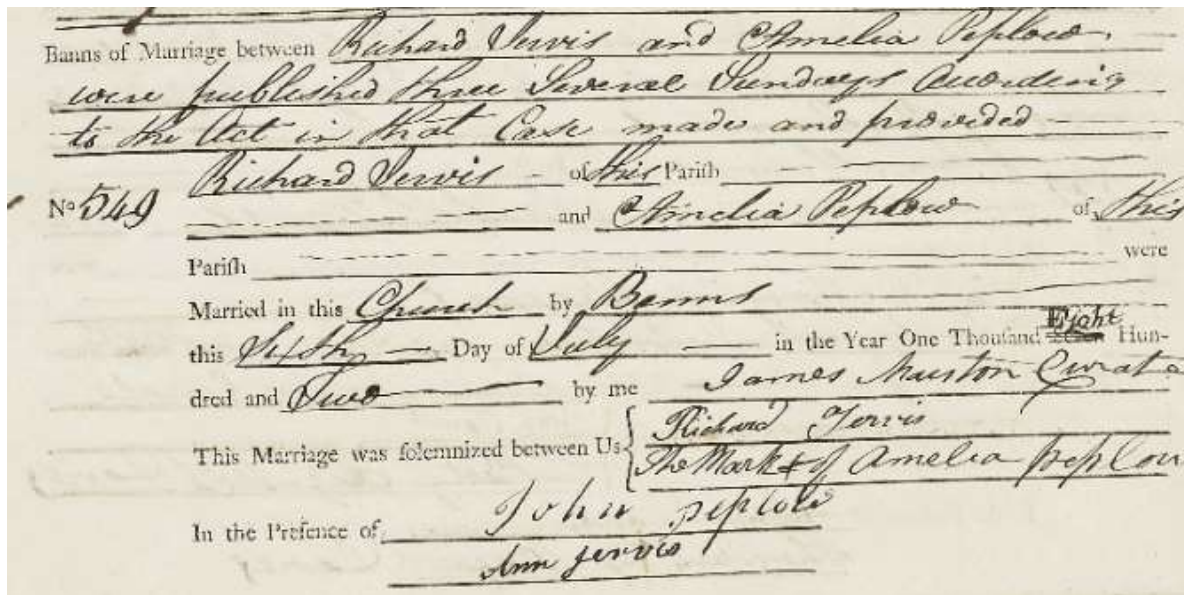 Banns of Marriage between Richard Jervis and Amelia Peplow
were published three Several Sundays According
to the Act in that Case made and provided
Richard Jervis of this Pariſh
No 549 and Amelia Peplow of this
Pariſh were
Married in this Church by Banns
this Sixth Day of July in the Year One Thouſand Eight Hun-
dred and Two by me James Curate
This Marriage was ſolemnized between Us Richard Jervis
The Mark + of Amelia peplow
In the Preſence of John peplow
Ann jervis